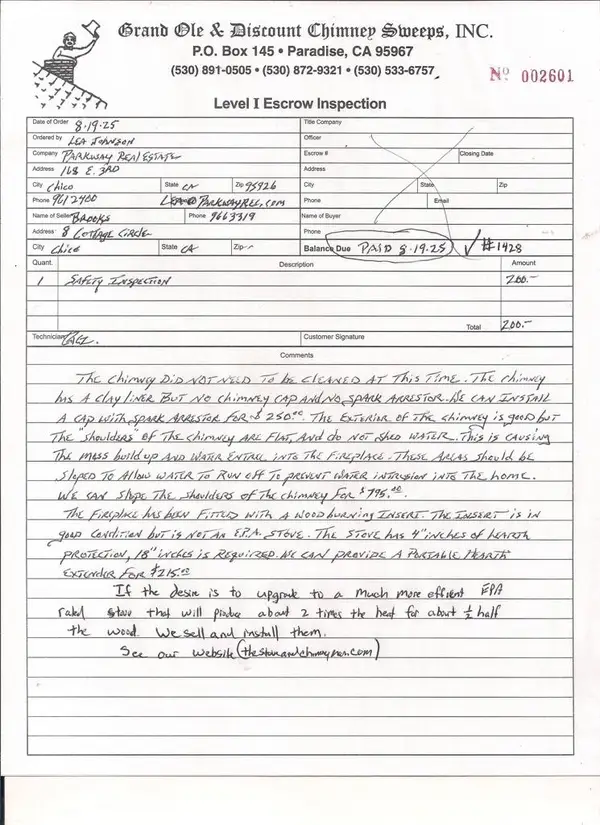 Grand Ole & Discount Chimney Sweeps, INC.
P.O. Box 145 • Paradise, CA 95967
(530) 891-0505 • (530) 872-9321 • (530) 533-6757
No 002601
Level I Escrow Inspection
Date of Order 8-19-25 Title Company
Ordered by LEA JOHNSON Officer
Company PARKWAY REAL ESTATE Escrow # Closing Date
Address 168 E. 3RD Address
City Chico State CA Zip 95926 City State Zip
Phone 961 2400 LEA@PARKWAYREC.COM Phone Email
Name of Seller BROOKS Phone 966 3319 Name of Buyer
Address 8 COTTAGE CIRCLE Phone
City Chico State CA Zip Balance Due PAID 8-19-25 ✓ #1428
Quant. Description Amount
1 SAFETY INSPECTION 200.-
Total 200.-
Technician Customer Signature
Comments
The chimney DID NOT NEED To be CLEANED AT This TIME. The chimney
hAS A clAy liNER BUT NO chimney CAP AND NO SPARK ARRESTOR. WE CAN INSTAll
A CAP with SPARK ARRESTOR FOR $250.00. The EXTERIOR OF The chimney is good but
The "shoulders" OF The chimney ARE FlAT, AND do NOT shed WATER. This is CAUSING
The MOSS build up AND WATER ENTRY INTO The FIREPlACE. These AREAS should be
SloPED To Allow WATER To RUN OFF To PREVENT WATER INTRUSION INTO The home.
WE CAN SloPE The shoulders OF The chimney FOR $795.00.
The FIREPlACE hAS bEEN FITTED with A WOOD bURNING INSERT. The INSERT is iN
good CONDITION but is NOT AN E.P.A. STOVE. The STOVE hAS 4" inches OF hEARTH
PROTECTION, 18" inches is REQUIRED. WE CAN PROVIDE A PORTABlE HEARTH
EXTENDER FOR $215.00
If the desire is to upgrade to a much more efficent EPA
rated stove that will produce about 2 times the heat for about ½ half
the wood. We sell and install them.
See our website (thestoveandchimneyman.com)